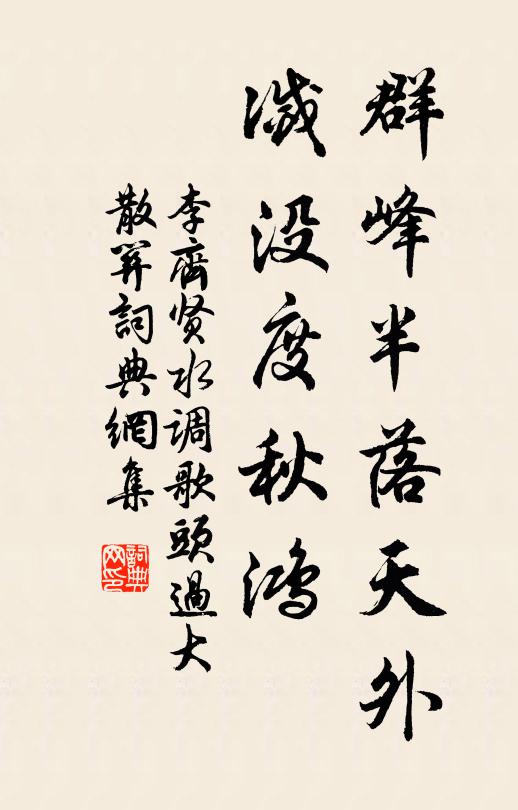 群峰半落天外
滅没度秋鸿
李齊贤水调歌頭過大
散关詞典網集
詞典网印